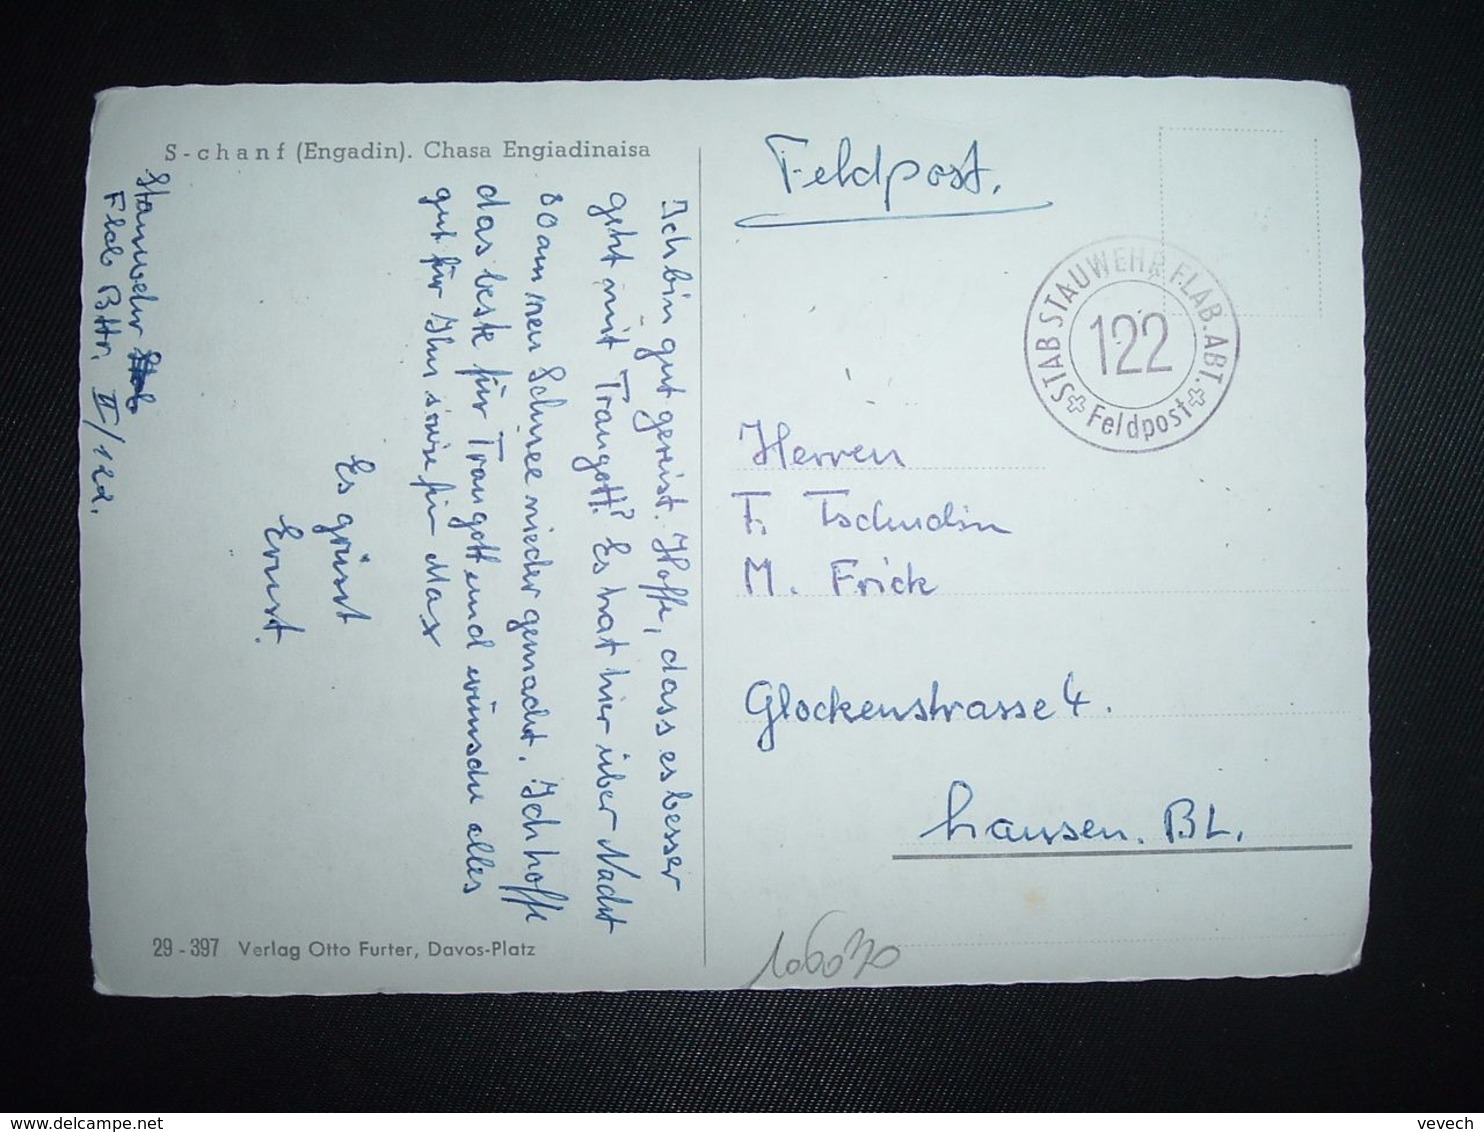 S-chanf (Engadin). Chasa Engiadinaisa
Stauwehr Stab
Flab Bttr. II/122.
Ich bin gut gereist. Hoffe, dass es besser
geht mit Traugott? Es hat hier über Nacht
80 cm neu Schnee nieder gemacht. Ich hoffe
das beste für Traugott und wünsche alles
gut für Ihn sowie für Max
Es grüsst
Ernst.
29-397 Verlag Otto Furter, Davos-Platz
Feldpost.
STAB STAUWEHR FLAB. ABT.
122
Feldpost
Herren
F. Tschudin
M. Frick
Glockenstrasse 4.
Lausen. BL.
106070
delcampe.net
vevech